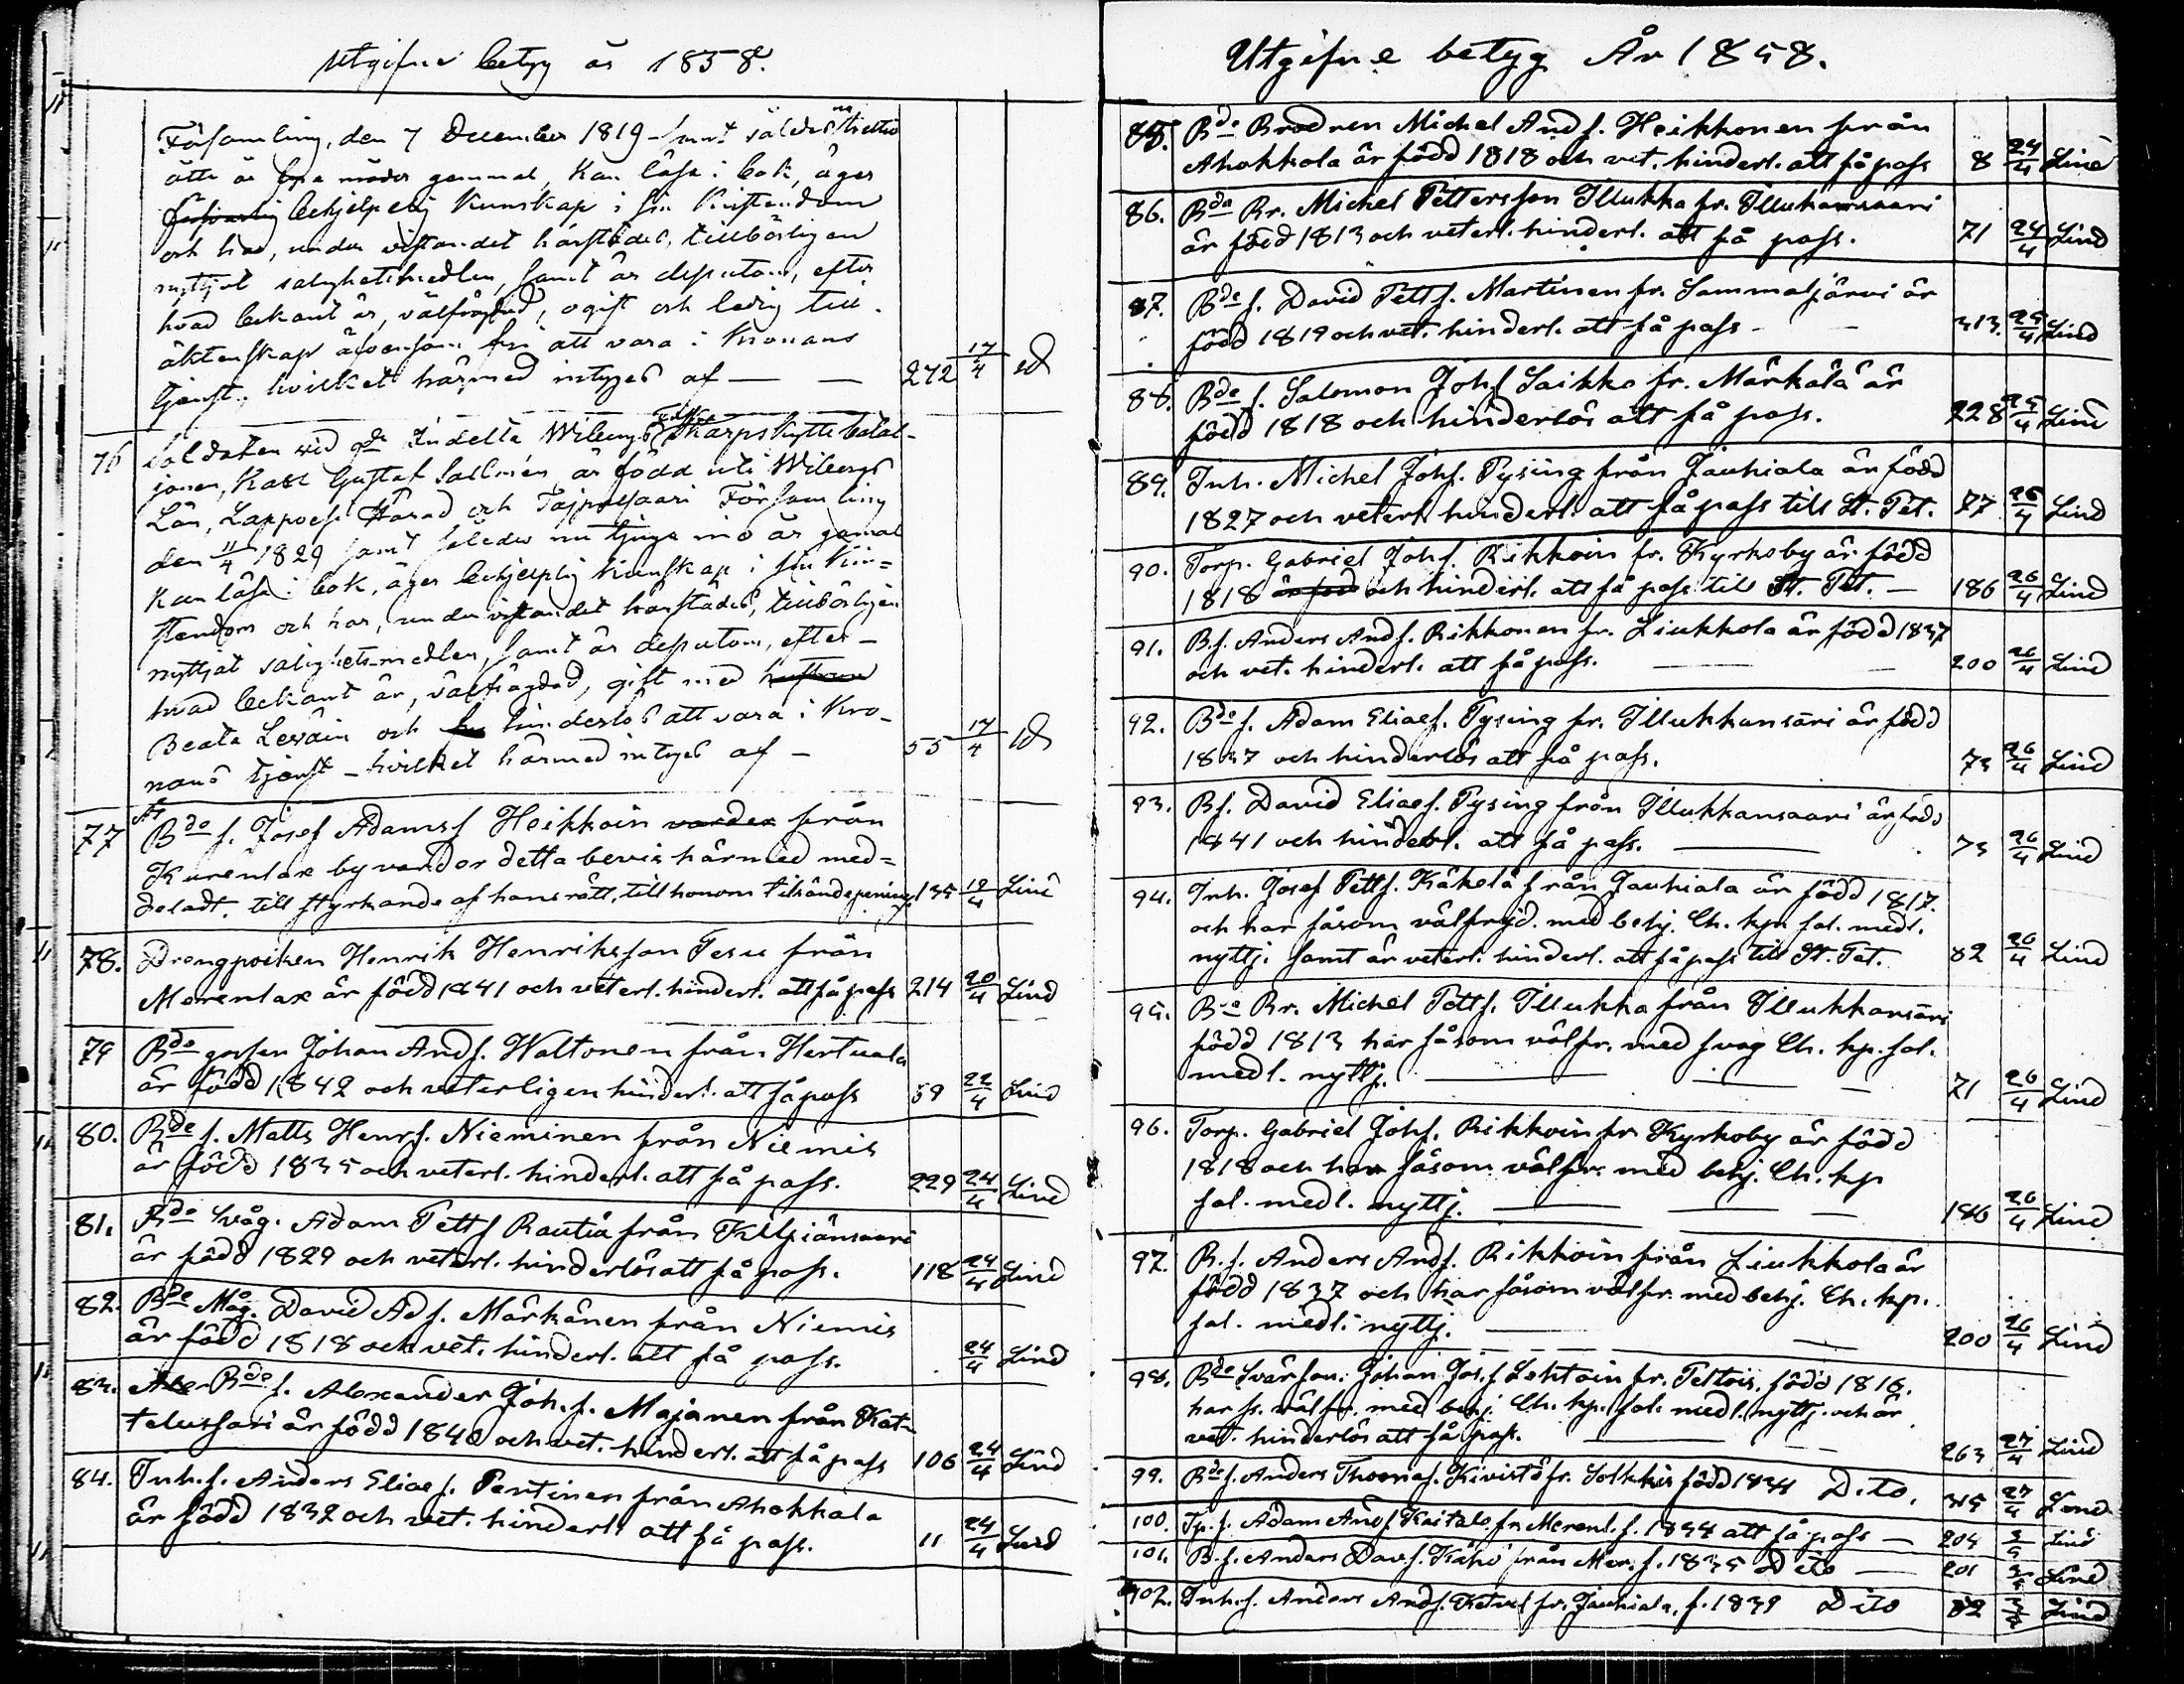 Utgifne betyg år 1858.
Församling, den 7 December 1819 samt således trettio
åtta år gammal, kan läsa i bok, äger
försvarlig behjelplig kunskap i sin Kristendom
och har, under vistandet härstädes, tillbörligen
nyttjat salighetsmedlen, samt är desputom, efter
hvad bekant är, välfrägdad, ogift och ledig till
äktenskap äfvensom fri att vara i Kronans
tjenst, hvilket härmed intygas af — — 272 17/4
76 Soldaten vid Indelta Wiborgs Skarpskytte batal-
jonen, Karl Gustaf Sallmén är född uti Wiborgs
Län, Lappvesi Härad och Taipalsaari Församling
den 11/4 1829 samt således nu tjugu nio år gamal
Kan läsa i bok, äger behjelplig kunskap i sin Kri=
stendom och har, under vistandet härstädes, tillbörligen
nyttjat salighetsmedlen, samt är desputom, efter
hvad bekant är, välfrägdad, gift med hustrun
Beata Leväin och hinderlös att vara i Kro-
nans tjenst – hvilket härmed intygas af – 55 17/4
77 Bde s. Josef Adamsf Heikkoin varder från
Kurenlax by vardor detta bevis härmed med=
deladt, till styrkande af hans rätt, till honom tillsände penningar 135 19/4 Lind
78. Drengpoiken Henrik Henriksson Tesu från
Merenlax är född 1841 och veterl. hinderl. att få pass 214 20/4 Lind
79 Bde gossen Johan Andf. Waltonen från Hertuala
är född 1842 och veterligen hinderl. att få pass 59 22/4 Lind
80. Bde s. Matts Henrf. Nieminen från Niemis
är född 1835 och veterl. hinderl. att få pass. 229 24/4 Lind
81. Bde Svåg. Adam Pettf Rautia från Kiljiänsaari
är född 1829 och veterl. hinderlös att få pass. 118 24/4 Lind
82. Bde Måg. David Adf. Märkänen från Niemis
är född 1818 och vet. hinderl. att få pass. 24/4 Lind
83. Bde s. Alexander Joh. f. Majanen från Kat-
telussari är född 1840 och vet. hinderl. att få pass 106 24/4 Lind
84. Inh. s. Anders Eliasf. Pentinen från Ahokkala
är född 1832 och vet. hinderl. att få pass. 11 24/4 Lind
Utgifne betyg År 1858.
85. Bde Brodren Michel Andf. Heikkonen från
Ahokkala är född 1818 och vet. hinderl. att få pass 8 24/4 Lind
86. Bde Br. Michel Pettersson Illukka fr. Illukansaari
är född 1813 och veterl. hinderl. att få pass. 71 24/4 Lind
87. Bde s. David Pettf. Martinen fr. Sammaljärvi är
född 1819 och vet. hinderl. att få pass – 313 25/4 Lind
88. Bde s. Salomon Johf Saikko fr. Märkälä är
född 1818 och hinderlös att få pass. 228 25/4 Lind
89. Inh. Michel Johf. Pysing från Jauhiala är född
1827 och veterl. hinderl. att få pass till St. Pet. 77 26/4 Lind
90. Torp. Gabriel Johf. Rikkoin fr. Kyrkoby är född
1818 är född och hinderl. att få pass till St. Pet. – 186 26/4 Lind
91. B.s. Anders Andf. Rikkonen fr. Liukkola är född 1837
och vet. hinderl. att få pass. — 200 26/4 Lind
92. Bde s. Adam Eliasf. Pysing fr. Illukkansari är född
1837 och hinderlös att få pass. 73 26/4 Lind
93. Bs. David Eliasf. Pysing från Illukkansaari är född
1841 och hinderl. att få pass. — 73 26/4 Lind
94. Inh. Josef Pettf. Käkelä från Jauhiala är född 1817.
och har såsom välfrejd. med behj. Ch. kp sal. medl.
nyttj. samt är veterl. hinderl. att få pass till St. Pet. 82 26/4 Lind
95. Bde Br. Michel Pettf. Illukka från Illukkansari
född 1813 har såsom välfr. med svag Ch. kp. sal.
medl. nyttj. — 71 26/4 Lind
96. Torp. Gabriel Johf. Rikkoin fr. Kyrkoby är född
1818 och har såsom välfr. med behj. Ch. kp
sal. medl. nyttj. — 186 26/4 Lind
97. B.s. Anders Andf. Rikkoin från Liukkola är
född 1837 och har såsom välfr. med behj. Ch. kp.
sal. medl. nyttj. — 200 26/4 Lind
98. Bde Svärson. Johan Josf Lehtoin fr. Pettois. född 1816.
har ss. välfr. med behj. Ch. kp. sal. medl. nyttj. och är
vet. hinderlös att få pass. — 263 27/4 Lind
99. Bde s. Anders Thomasf. Kivistö fr. Solkkis född 1834 Dito. 315 27/4 Lind
100. Tp. s. Adam Andf. Kaitala fr. Merenl. f. 1834 att få pass — 204 3/5 Lind
101. B.s. Anders Davf. Käpö från Mer. f. 1835 Dito — 201 3/5 Lind
102. Inh. s. Anders Andf. fr. Jauhiala, f. 1839 Dito 82 3/5 Lind